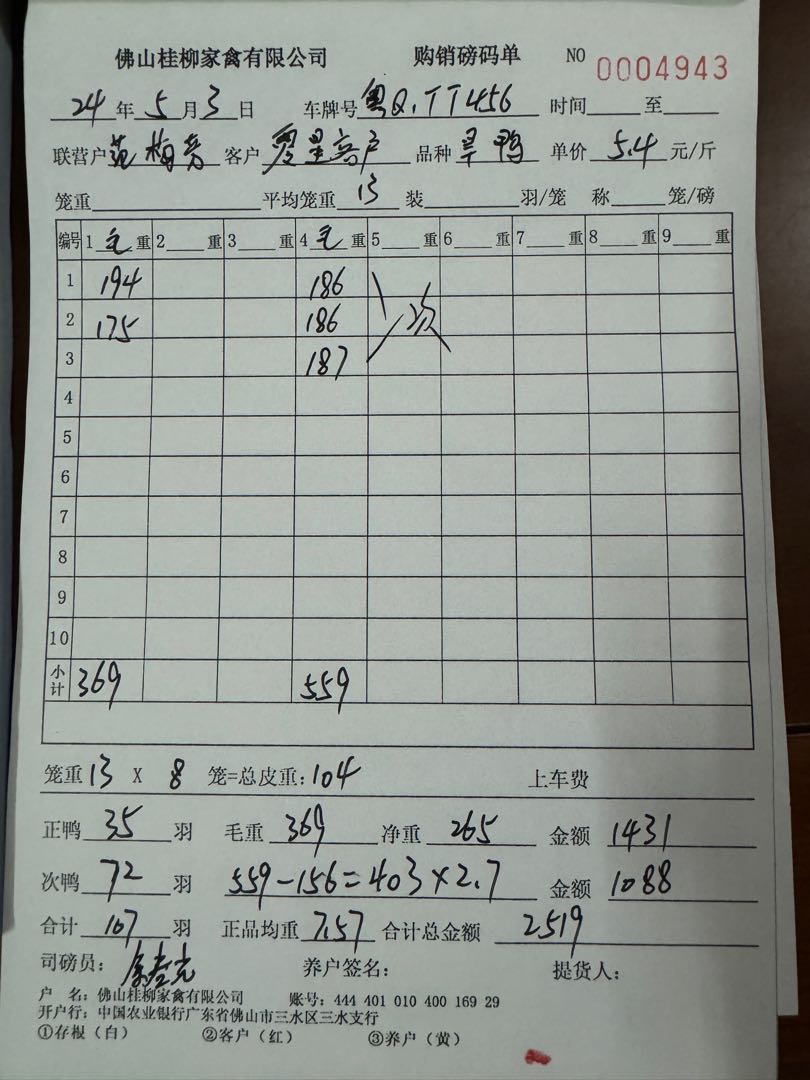 佛山桂柳家禽有限公司 购销磅码单 NO 0004943
24年5月3日 车牌号 粤Q.TT456 时间 至
联营户 范梅芳 客户 零星客户 品种 旱鸭 单价 5.4 元/斤
笼重 平均笼重 13 装 羽/笼 称 笼/磅
编号 1 毛 重 2 重 3 重 4 毛 重 5 重 6 重 7 重 8 重 9 重
1 194 186
2 175 186 次
3 187
4
5
6
7
8
9
10
小计 369 559
笼重 13 X 8 笼=总皮重: 104 上车费
正鸭 35 羽 毛重 369 净重 265 金额 1431
次鸭 72 羽 559-156=403×2.7 金额 1088
合计 107 羽 正品均重 7.57 合计总金额 2519
司磅员: 养户签名: 提货人:
户 名: 佛山桂柳家禽有限公司 账号: 444 401 010 400 169 29
开户行: 中国农业银行广东省佛山市三水区三水支行
①存根（白） ②客户（红） ③养户（黄）